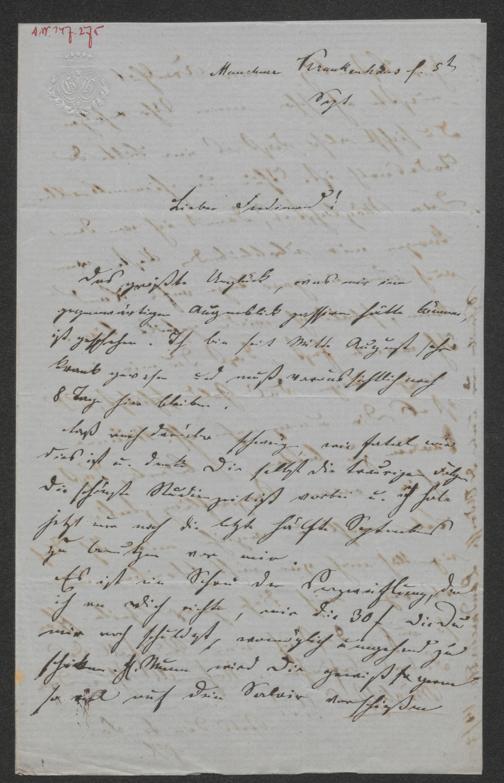 A.N. 147.275
Münchner Krankenhaus f. 5t
Sept.
Lieber Ferdinand!
Das größte Unglück was mir im
gegenwärtigen Augenblick passiren hätte können,
ist geschehen. Ich bin seit Mitte August sehr
krank gewesen und muß voraussichtlich noch
8 Tage hier bleiben.
Laß mich darüber schweigen, wie fatal mir
dies ist u. denke Dir selbst die traurigen Folgen
die schönste Studienzeit ist vorbei u. ich habe
jetzt nur noch die letzte Hälfte September
zu benutzen vor mir.
Es ist ein Schrei der Verzweiflung, den
ich an Dich richte, mir die 30 f die Du
mir noch schuldest, womöglich umgehend zu
schicken. H. Mumm wird Dir gewiß gern
so viel auf Dein Salair vorschießen